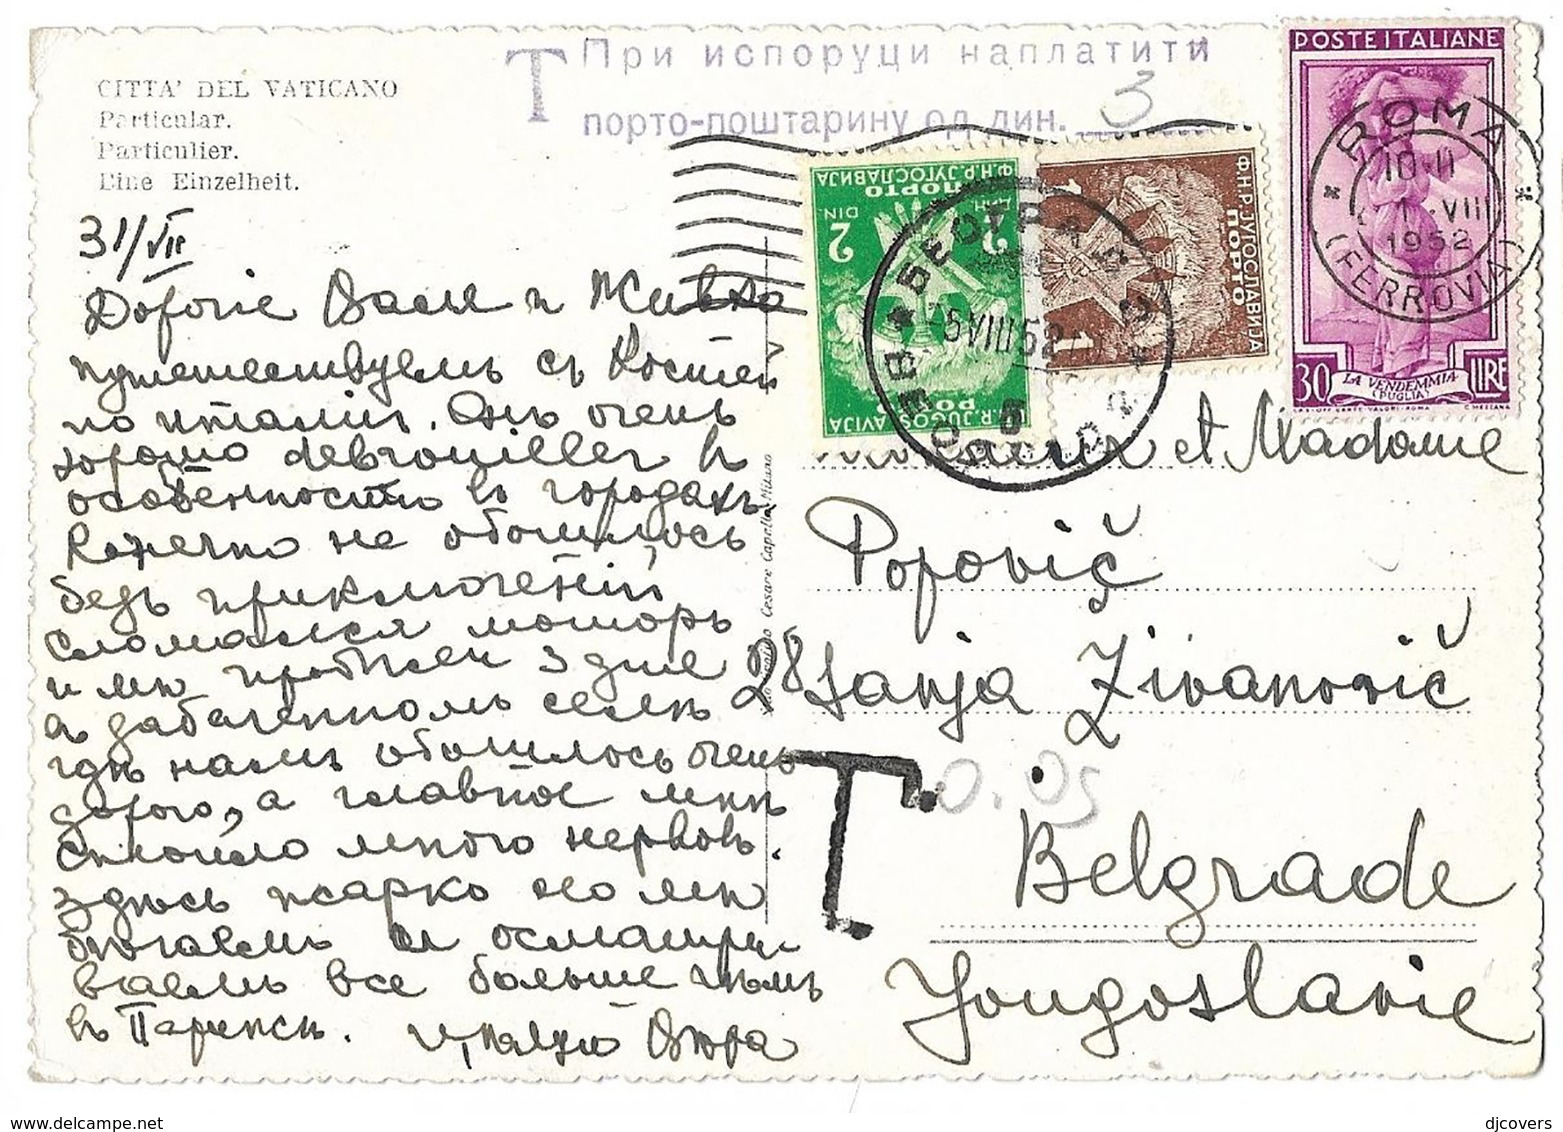 CITTA' DEL VATICANO
Particular.
Particulier.
Eine Einzelheit.
T При испоруци наплатити
порто-поштарину од дин. 3
POSTE ITALIANE
30 LIRE
LA VENDEMMIA
(PUGLIA)
ROMA
10-11
VIII
1952
(FERROVIA)
Ф.Н.Р. ЈУГОСЛАВИЈА
ПОРТО
2 DIN.
2 ДИН.
F.N.R. JUGOSLAVIJA
PORTO
Ф.Н.Р. ЈУГОСЛАВИЈА
ПОРТО
1
1
БЕОГРАД 2
5 VIII 52
BEOGRAD 2
31/VII
Дорогіе Васи и Живка
путешествуемъ съ Костей
по италіи. Онъ очень
хорошо debrouiller и
особенности въ городахъ
Конечно не обошлось
безъ приключеній,
сломался моторъ
и мы 3 дня
в забаченномъ селеніи
гдѣ намъ обошлось очень
дорого, а главное мнѣ
стоило много нервовъ.
Здѣсь жарко но мы
бѣгаемъ и осматри
ваемъ все больше чѣмъ
въ Парижѣ. Цѣлую Вѣра
et Madame
Popović
28 Sanja Živanović
T 0.05
Belgrade
Yougoslavie
Cesare Capello, Milano
djcovers